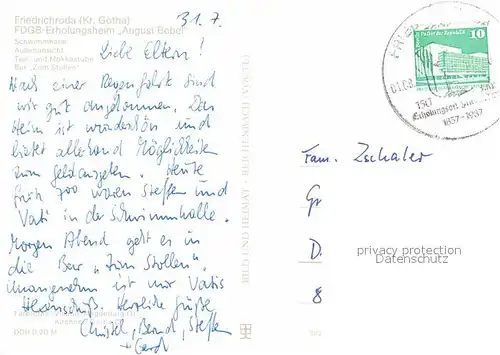 Friedrichroda (Kr. Gotha)
FDGB-Erholungsheim „August Bebel"
Schwimmhalle
Außenansicht
Tee- und Mokkastube
Bar „Zum Stollen"
31. 7.
Liebe Eltern!
Nach einer Regenfahrt sind
wir gut angekommen. Das
Heim ist wunderschön und
bietet allerhand Möglichkeiten
zum Geldausgeben. Heute
früh 700 waren Steffen und
Vati in der Schwimmhalle.
Morgen Abend geht es in
die Bar „Zum Stollen".
Unangenehm ist nur Vatis
Hexenschuß. Herzliche Grüße
Christel, Bernd, Steffen
+ Gerd
DDR 0,20 M
BILD UND HEIMAT
REICHENBACH
10
150
Erholungsort
1837-1987
Fam. Zschaler
G
D
8
privacy protection
Datenschutz